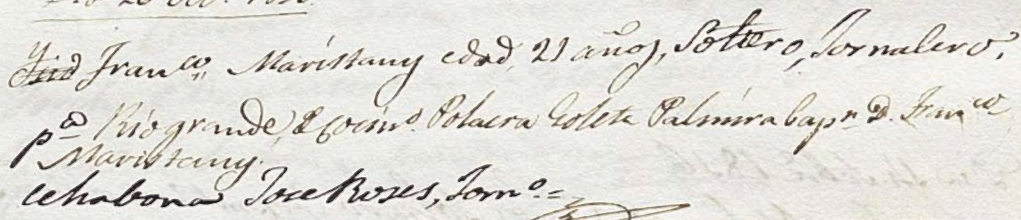 Franco Maristany edad, 21 años, Soltero, Jornalero,
pa Riogrande, Polacra Goleta Palmira Capn D. Franco
Maristany.
le habona Jose Roses, Jorno =